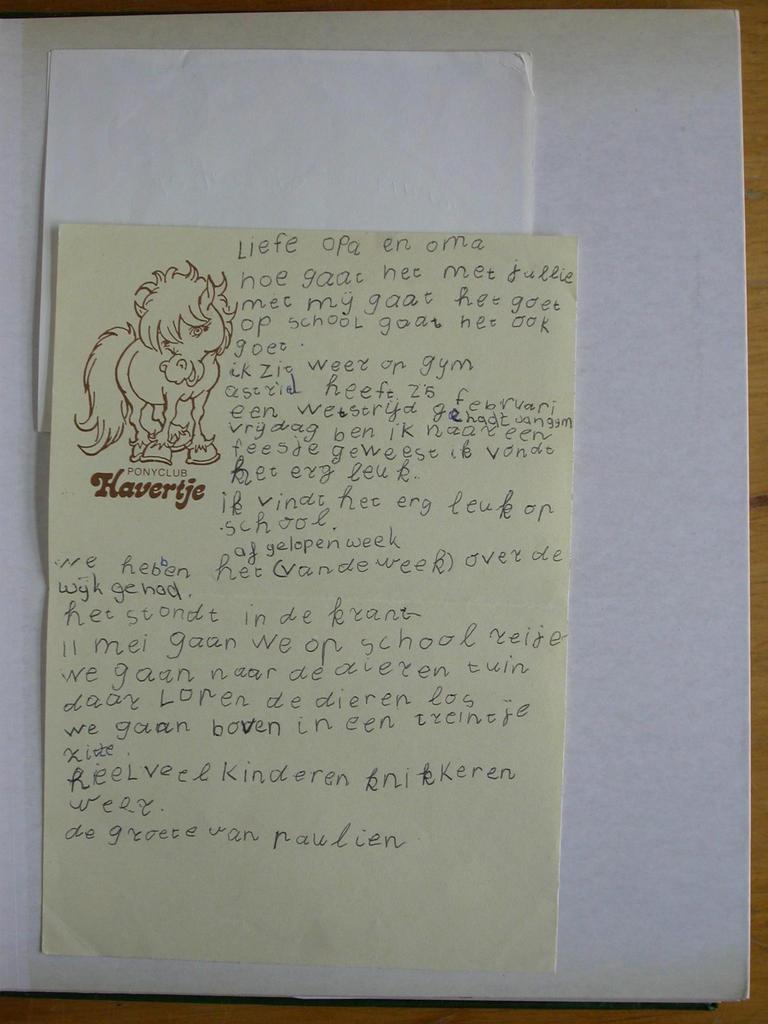 Liefe opa en oma
hoe gaat het met jullie
met mij gaat het goet
op school gaat het ook
goet.
ik zit weer op gym
astrid heeft 25 februari
een wetstrijd gehadt van gym
vrijdag ben ik naar een
feesje geweest ik vondt
het erg leuk.
ik vindt het erg leuk op
school.
PONYCLUB
Havertje
afgelopen week
we hebben het (van de week) over de
wijk gehad.
het stondt in de krant
11 mei gaan we op school reije
we gaan naar de dieren tuin
daar Lopen de dieren los
we gaan boven in een treintje
heel veel kinderen knikkeren
weer.
de groete van paulien